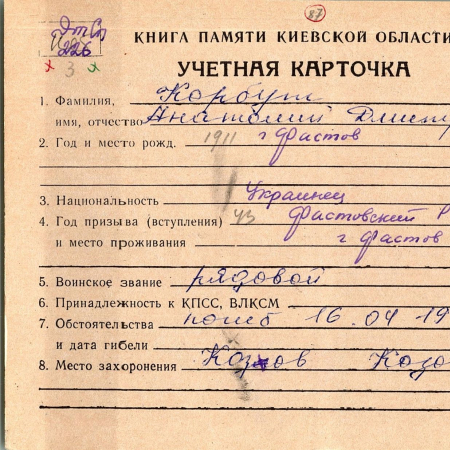 87
226
3
КНИГА ПАМЯТИ КИЕВСКОЙ ОБЛАСТИ
УЧЕТНАЯ КАРТОЧКА
1. Фамилия, Корбут
имя, отчество Анатолий Дмит
2. Год и место рожд. 1911 г Фастов
3. Национальность Украинец
4. Год призыва (вступления) 43 Фастовский Р
и место проживания г Фастов
5. Воинское звание рядовой
6. Принадлежность к КПСС, ВЛКСМ
7. Обстоятельства погиб 16 04 19
и дата гибели
8. Место захоронения